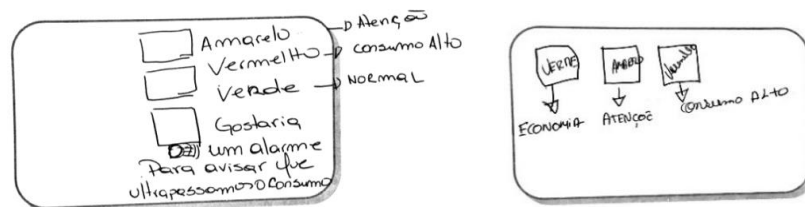 Amarelo → Atenção
Vermelho → consumo Alto
Verde → NORMAL
Gostaria
um alarme
Para avisar que
ultrapassamos o consumo
VERDE AMARELO Vermelho
ECONOMIA ATENÇÃO Consumo ALTO